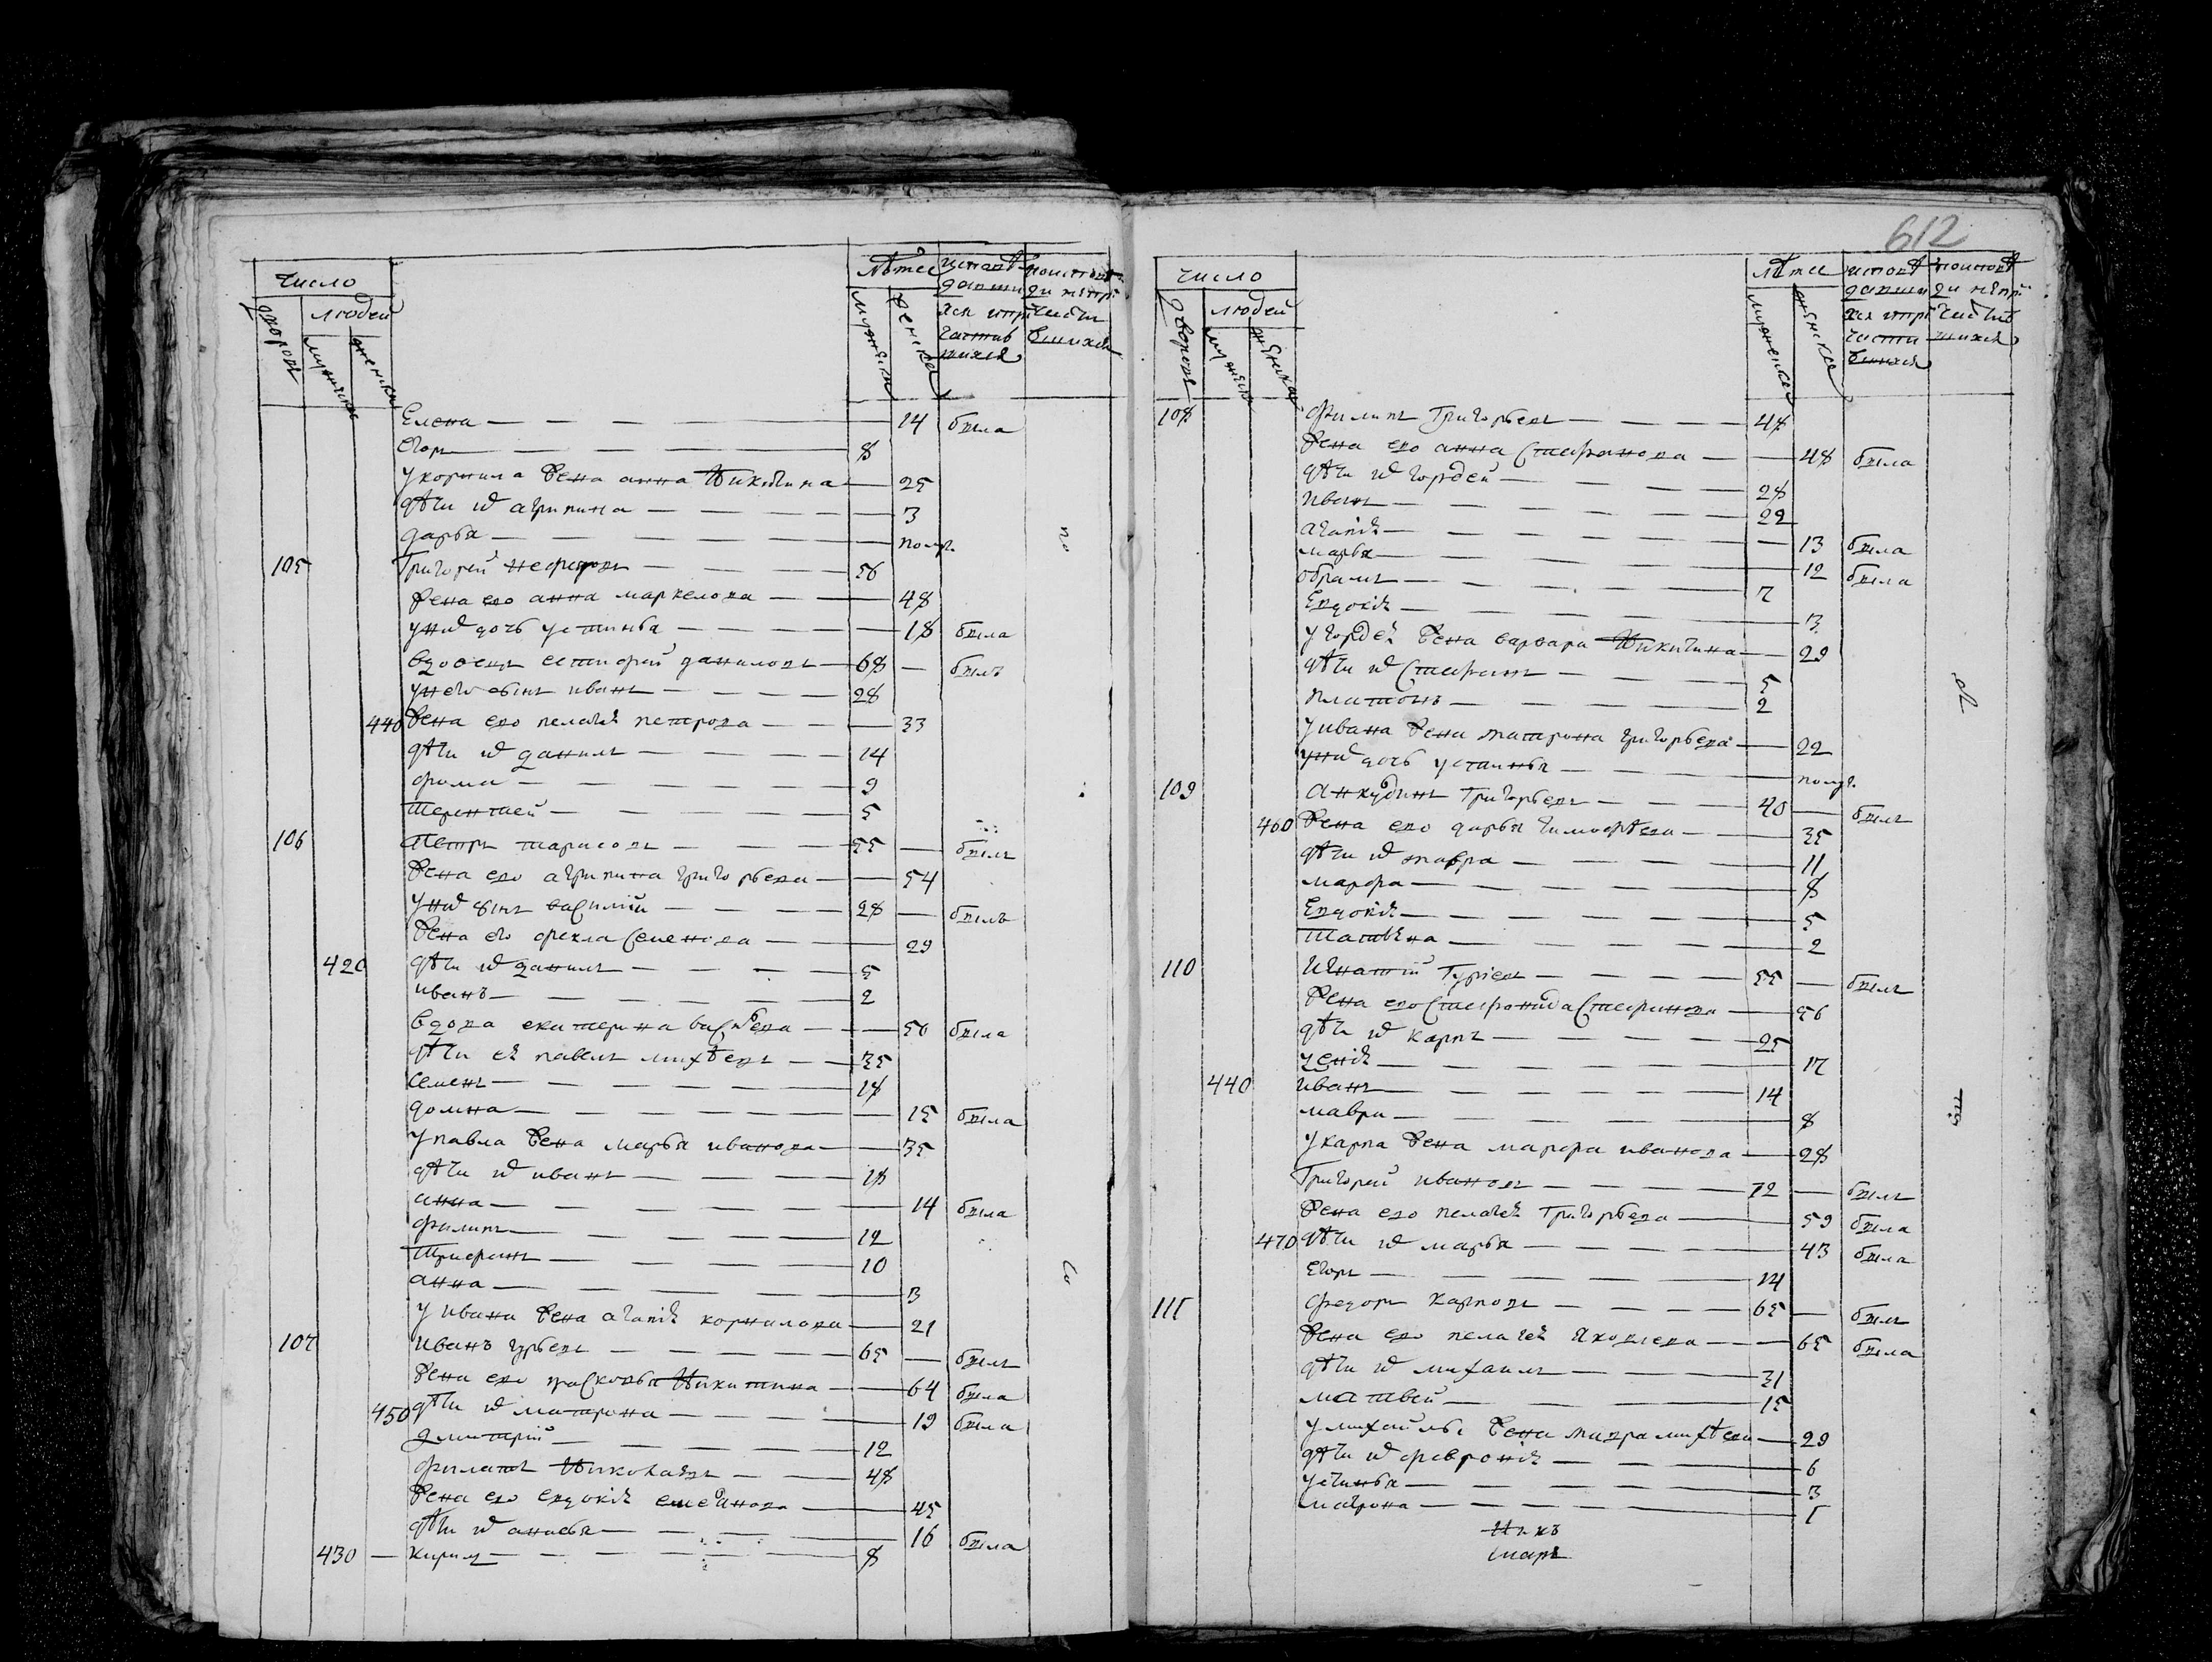 число
людей
дворовъ
мужеска
женска
лѣта
мужеска
женска
Елена — 14 была
егоръ — 8
у корнила жена анна Никитина — 25
дѣти их агрипина — 3
дарья — полг.
105 Григорей нефедовъ — 56
жена ево анна маркелова — 48
у них дочь устинья — 18 была
вдовецъ естифей даниловъ — 68 — былъ
у него сынъ иванъ — 28
440 жена ево пелагея петрова — 33
дѣти их данилъ — 14
фома — 9
Терентей — 5
106 Петръ тарасовъ — 55 — былъ
жена ево агрипина григорьева — 54
у них сынъ василий — 28 — былъ
жена его фекла семенова — 29
420 дѣти их данилъ — 5
иванъ — 2
вдова екатерина васильева — 50 была
дѣти ея павелъ михѣевъ — 35
семенъ — 18
домна — 15 была
у павла жена марья иванова — 35
дѣти их иванъ — 18
анна — 14 была
филипъ — 12
Трифонъ — 10
анна — 3
у ивана жена агапия корнилова — 21
107 иванъ гурьевъ — 65 — былъ
жена ево прасковья Никитина — 64 была
450 дѣти их матрона — 19 была
дмитрий — 12
филатъ Николаевъ — 48
жена ево евдокия семенова — 45
дѣти их анисья — 16 была
430 — кирил — 8
612
число
людей
дворовъ
мужеска
женска
лѣта
мужеска
женска
108 филипъ Григорьевъ — 48
жена ево анна Стефанова — 48 была
дѣти их гордей — 28
иванъ — 22
агапия — 13 была
марья — 12 была
абрамъ — 7
Евдокия — 3
у гордея жена варвара Никитина — 29
дѣти их Стефанъ — 5
платонъ — 2
у ивана жена матрона григорьева — 22
у них дочь устинья — полг.
109 Анкудинъ Григорьевъ — 40 — былъ
460 жена ево дарья тимофѣева — 35
дѣти их мавра — 11
марфа — 8
Евдокия — 5
Татьяна — 2
110 Игнатий Гурьевъ — 55 — былъ
жена ево Стефанида Стефанова — 56
дѣти их карпъ — 25
ксения — 17
440 иванъ — 14
мавра — 8
у карпа жена марфа иванова — 28
Григорей ивановъ — 72 — былъ
жена ево пелагея Григорьева — 59 была
470 дѣти их марья — 43 была
Егоръ — 14
111 федоръ карповъ — 65 — былъ
жена ево пелагея яковлева — 65 была
дѣти их михаилъ — 31
матвей — 15
у михаилы жена мавра михѣева — 29
дѣти их феврония — 6
устинья — 3
матрона — 1